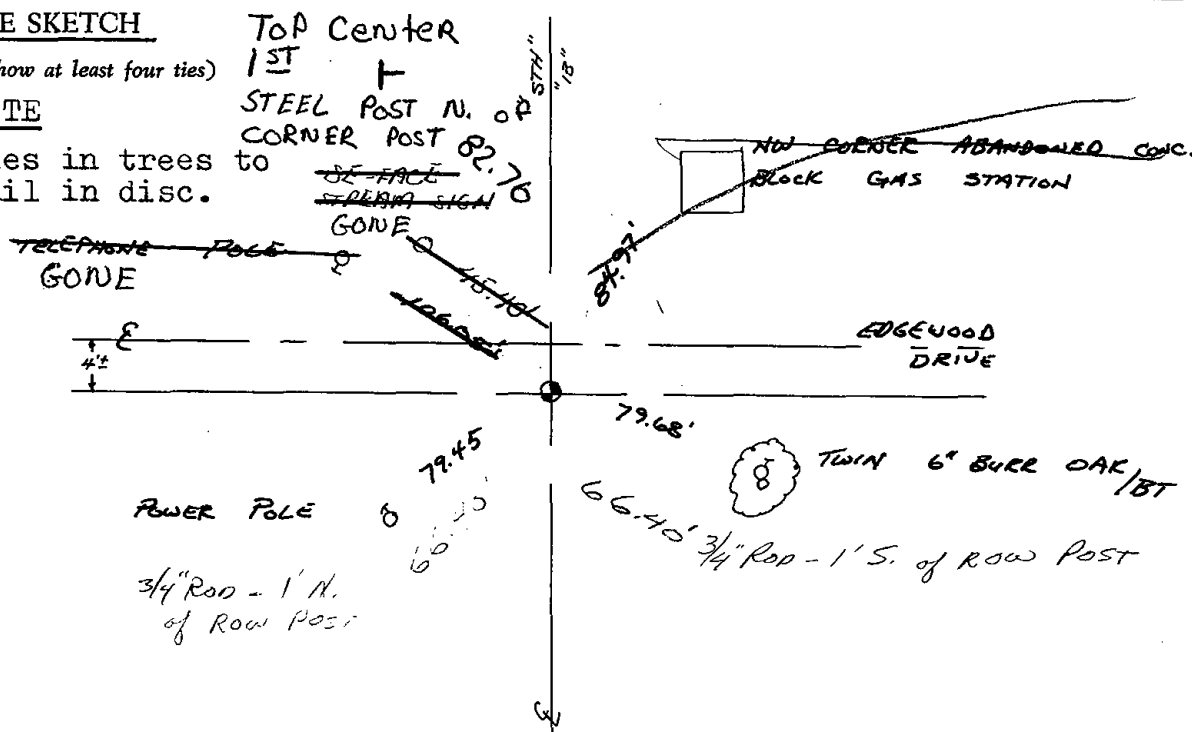 E SKETCH
how at least four ties)
TE
es in trees to
il in disc.
TOP CENTER
1ST
STEEL POST N. OF
CORNER POST
82.70
SE-FACE
STREAM SIGN
GONE
TELEPHONE POLE
GONE
45.40'
STH
"18"
NW CORNER ABANDONED CONC.
BLOCK GAS STATION
84.97'
EDGEWOOD
DRIVE
4'±
79.68'
79.45
TWIN 6" BURR OAK/BT
POWER POLE
66.40'
3/4" ROD - 1' S. of ROW POST
3/4" ROD - 1' N.
of ROW POST